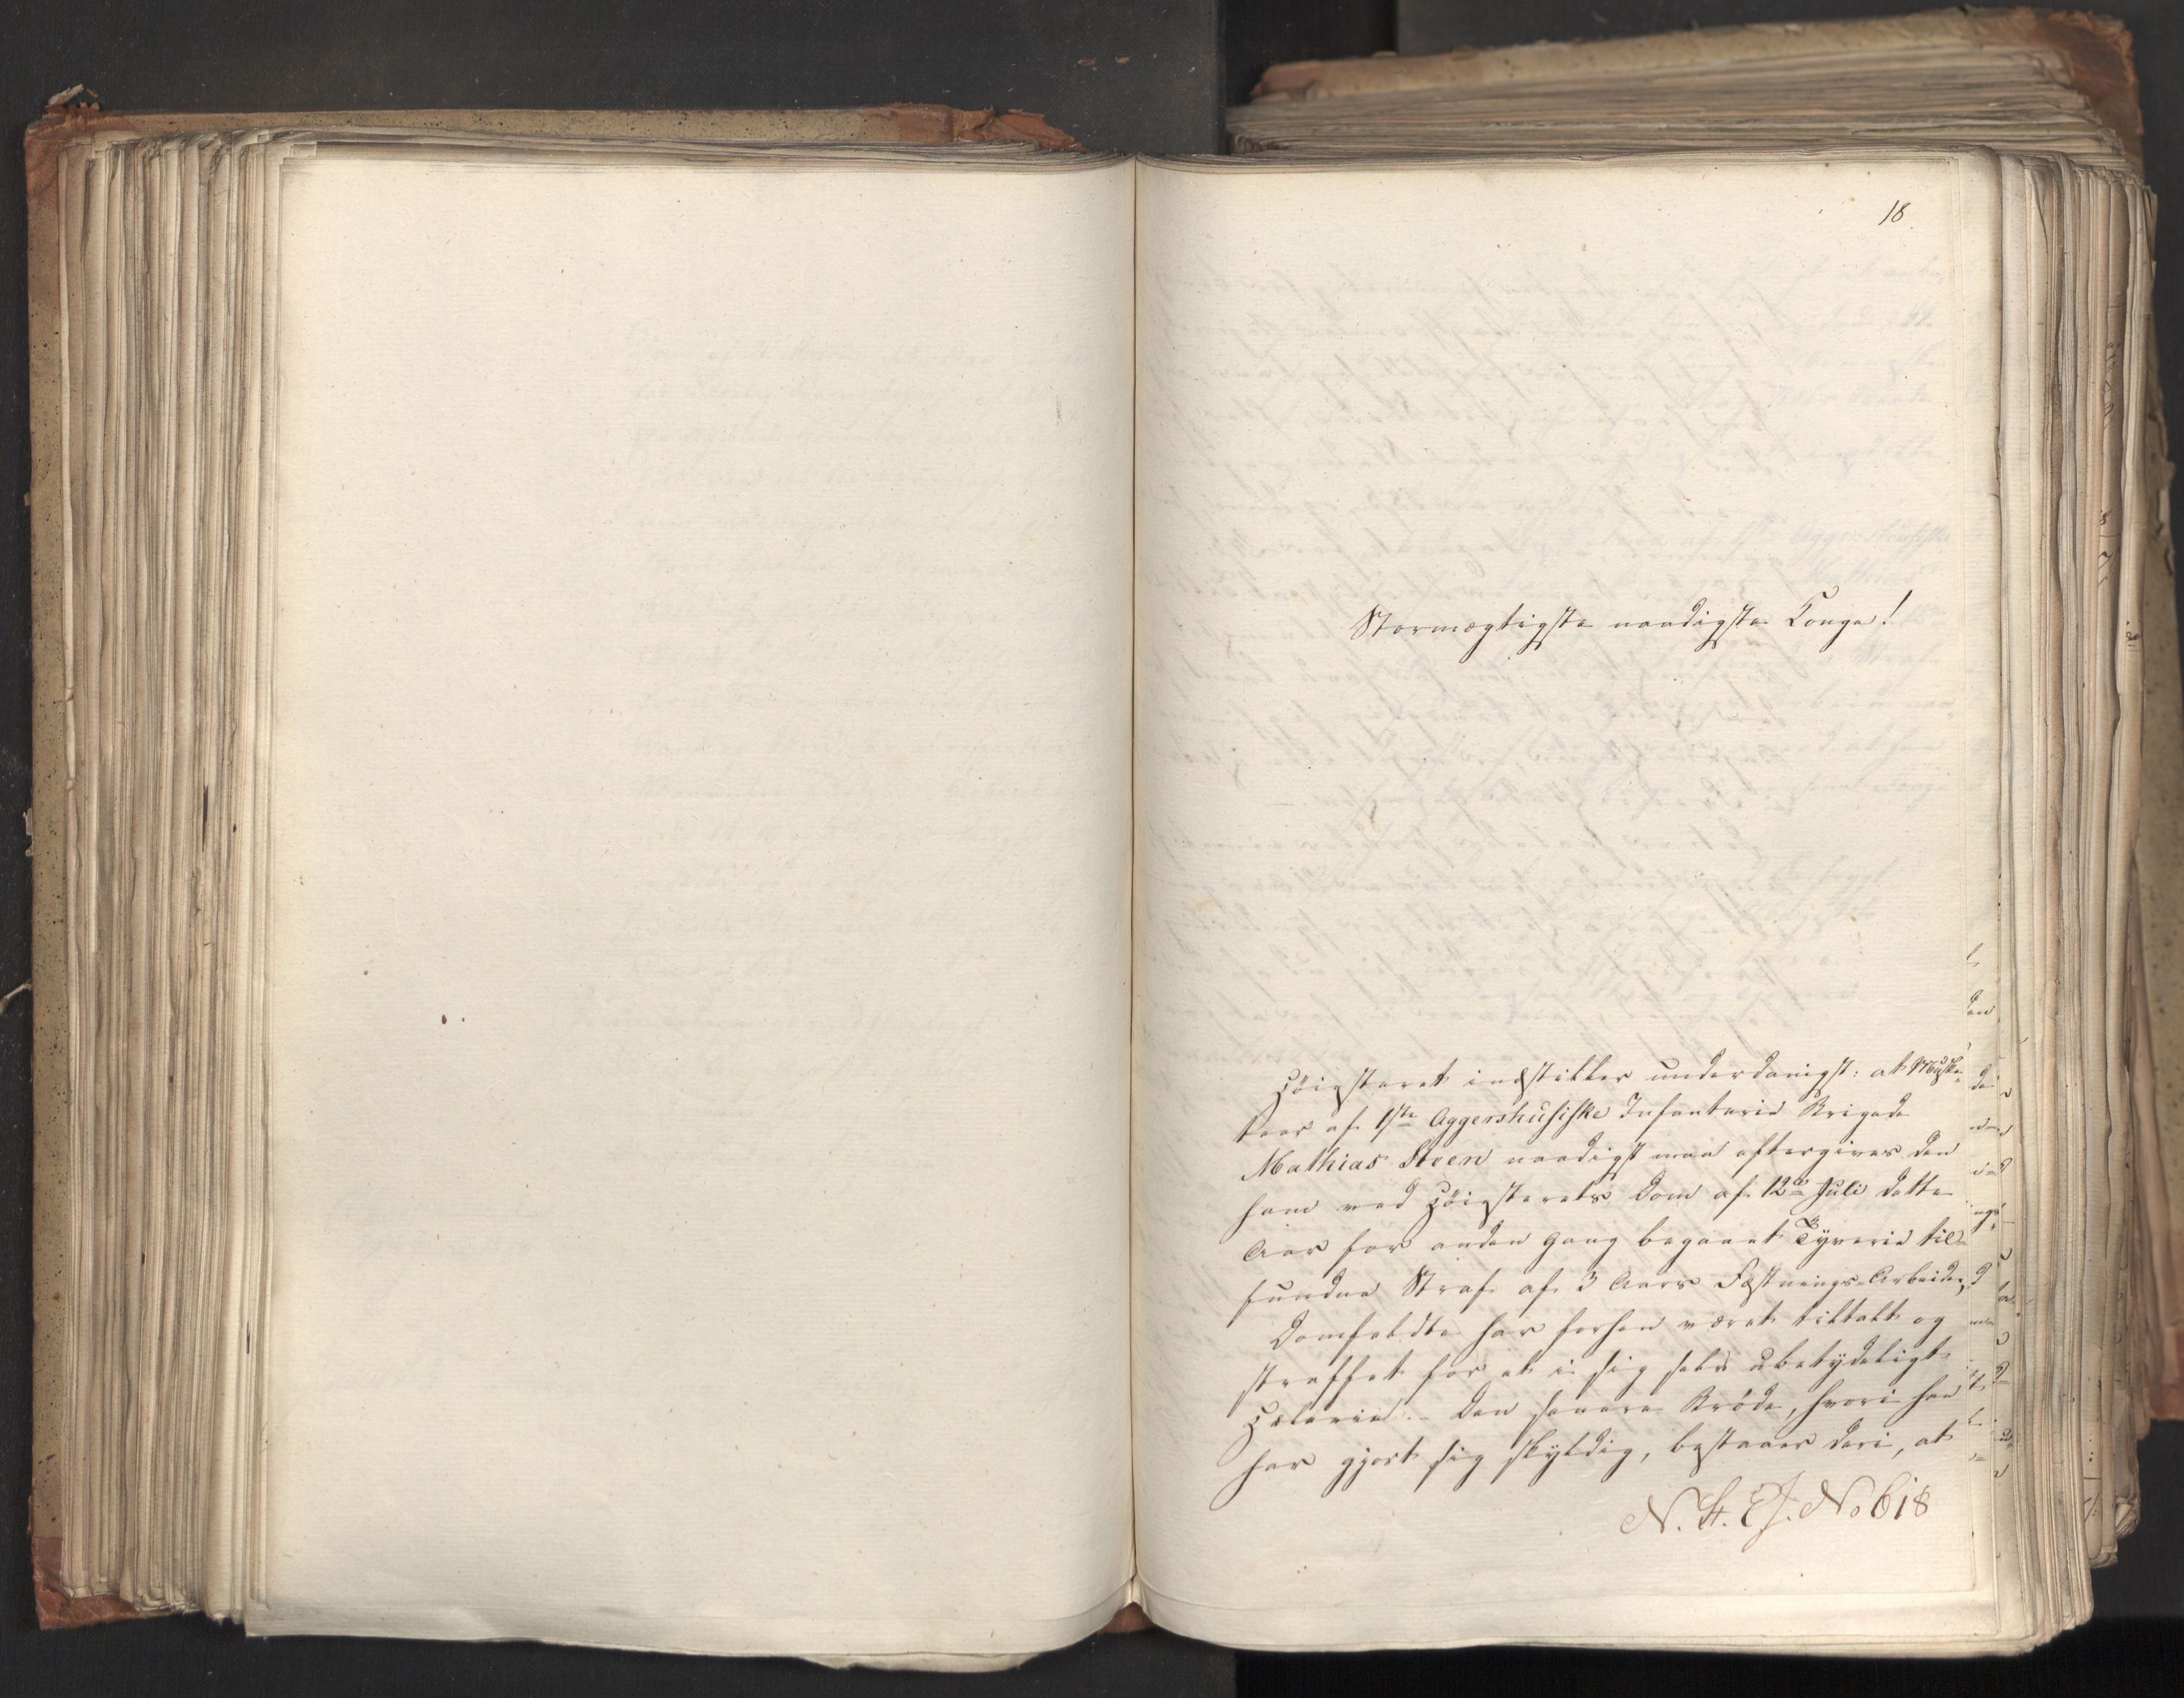 18.
Stormægtigste naadigste Konge!
Höiesteret indstiller underdanigst: at Muske-
teer af 1ste Aggershusiske Infanterie Brigade
Mathias Steen naadigst maa eftergives den
ham ved Höiesterets Dom af 12te Juli dette
Aar for anden Gang begaaet Tyverie til-
fundne Straf af 3 Aars Fæstnings-Arbeide,
Domfældte har forhen været tiltalt og
straffet for et i sig selv ubetydeligt
Hæleri. - Den senere Bröde, hvori han
har gjort sig skyldig, bestaaer deri, at
N. St. E J. No 618